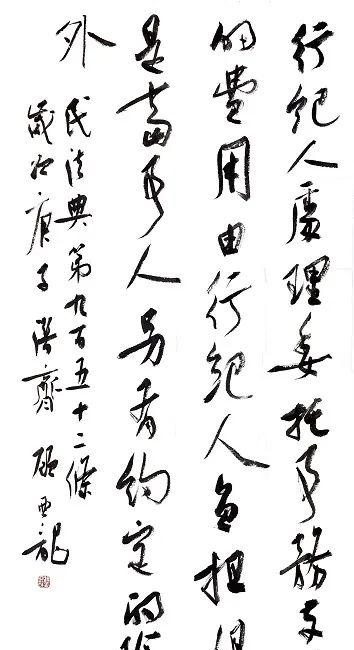 行紀人處理委托事務支
的費用由行紀人負担但
是當事人另有約定的除
外
民法典第九百五十二條
歲次庚子 顧亞龍